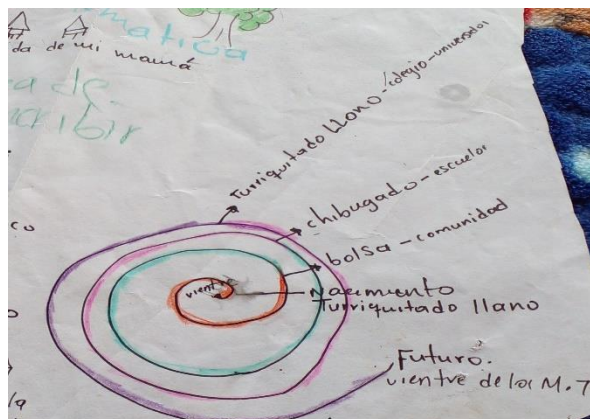 da de mi mamá
matica
a de
cribir
Turriquitado Llano - colegio - universidad
chibugado - escuela
bolsa - comunidad
vient
Nacimiento
Turriquitado llano
Futuro.
vientre de la M. T
co
o
la